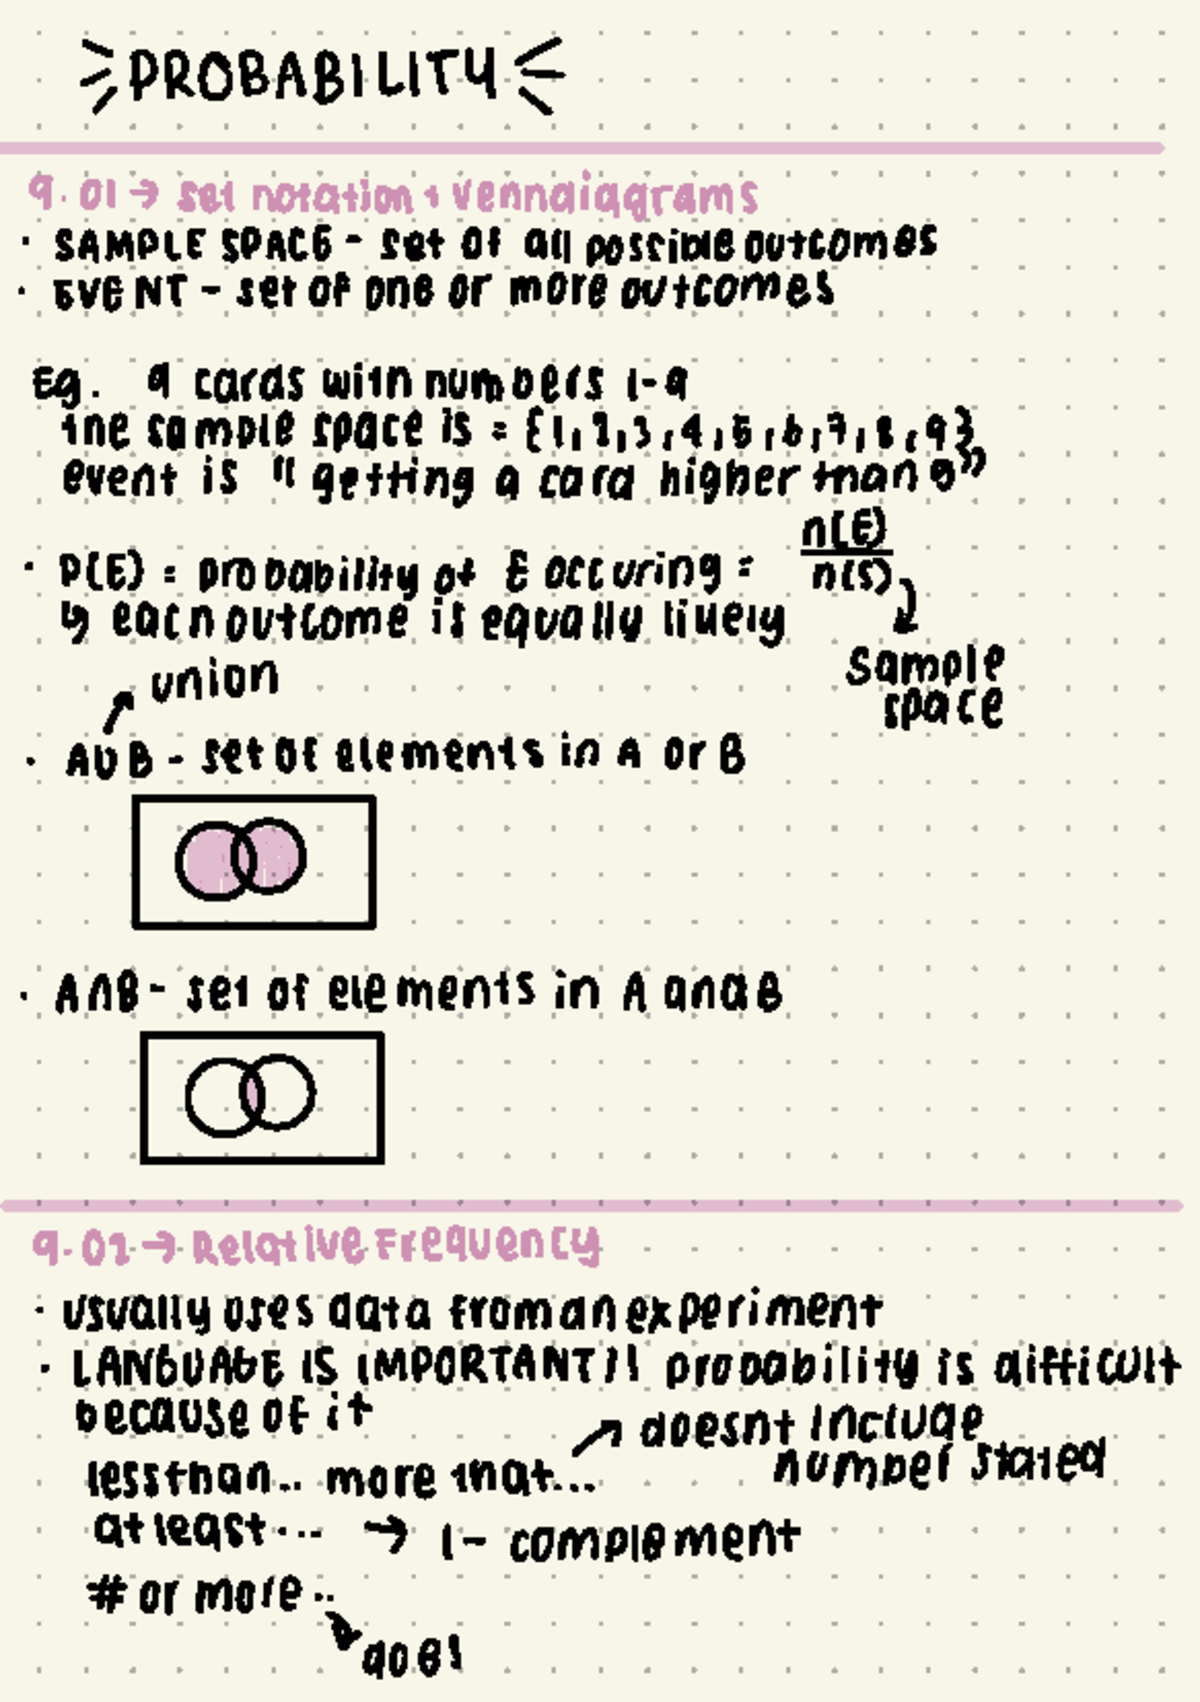 PROBABILITY
9.01 → set notation + venn diagrams
· SAMPLE SPACE - set of all possible outcomes
· EVENT - set of one or more outcomes
Eg. 9 cards with numbers 1-9
the sample space is = {1,2,3,4,5,6,7,8,9}
event is "getting a card higher than
· P(E) = probability of E occuring = n(E)/n(S)
↳ each outcome is equally likely
sample
space
union
· A∪B - set of elements in A or B
· A∩B - set of elements in A and B
9.02 → Relative Frequency
· usually uses data from an experiment
· LANGUAGE IS IMPORTANT!! probability is difficult
because of it
↗ doesnt include
number stated
less than.. more that...
at least... → 1 - complement
# or more..
does!